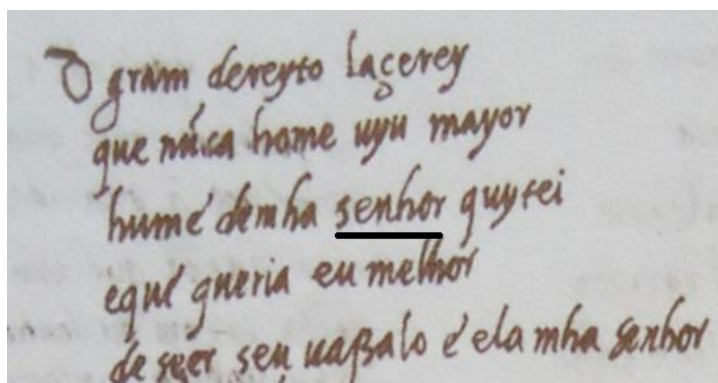 O gram dereyto laçerey
que nũca home uyu mayor
humé demha senhor quytei
equé queria eu melhor
de sẽer seu uaßalo é ela mha senhor